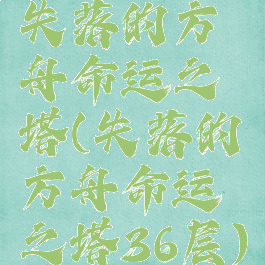 失落的方
舟命运之
塔(失落的
方舟命运
之塔36层)